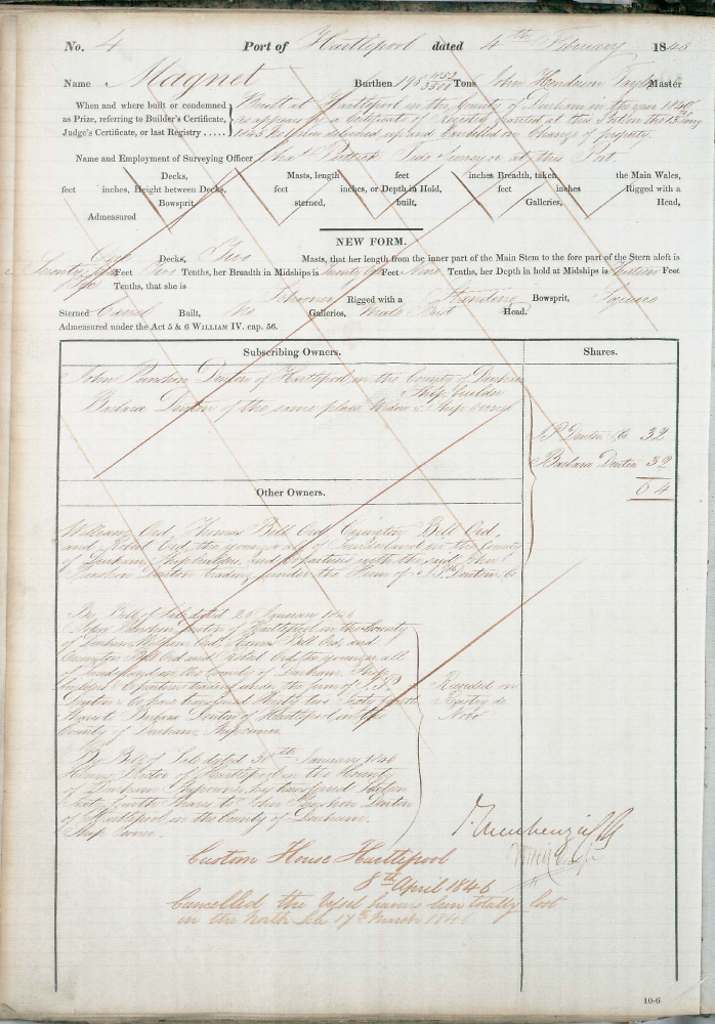 No. 4 Port of Hartlepool dated 4th February 1845
Name Magnet Burthen 195 Tons John Henderson Master
When and where built or condemned
as Prize, referring to Builder's Certificate,
Judge's Certificate, or last Registry .....
Built at Hartlepool in the County of Durham in the year
as appears by a Certificate of Registry granted at this Port on the 13
delivered up and Cancelled on Change of property
Name and Employment of Surveying Officer Tide Surveyor at this Port
Decks, Masts, length feet inches Breadth, taken the Main Wales,
feet inches, Height between Decks, feet inches, or Depth in Hold, feet inches Rigged with a
Bowsprit, sterned, built, Galleries, Head,
Admeasured
NEW FORM.
One Decks, Two Masts, that her length from the inner part of the Main Stem to the fore part of the Stern aloft is
Seventy Feet Tenths, her Breadth in Midships is Twenty Feet Nine Tenths, her Depth in hold at Midships is Feet
Tenths, that she is Schooner Rigged with a Standing Bowsprit, Square
Sterned Carvel Built, No Galleries, Male Bust Head.
Admeasured under the Act 5 & 6 WILLIAM IV. cap. 56.
Subscribing Owners. Shares.
John Punshon Denton of Hartlepool in the County of Durham
Ship builder
Barbara Denton of the same place Widow & Ship owner
J P Denton &c 32
Barbara Denton 32
64
Other Owners.
William Ord, Thomas Bell Ord, Bell Ord
and Robert Ord the younger all of Sunderland in the County
of Durham, Ship builders, and Copartners with the said John
Punshon Denton trading under the Firm of J. P. Denton & Co
By Bill of Sale dated 20 January 1846
John Punshon Denton of Hartlepool in the County
of Durham, William Ord, Thomas Bell Ord, and
Bell Ord and Robert Ord the younger all
of Sunderland in the County of Durham, Ship
builders Copartners trading under the firm of J. P.
Denton & Co have transferred Thirty two Sixty fourth
Shares to Barbara Denton of Hartlepool in the
County of Durham, Shipowner
Recorded on
Registry de
Novo
By Bill of Sale dated 30th January 1846
of Hartlepool in the County
of Durham Shipowner, has transferred
Sixty fourth Shares to John Punshon Denton
of Hartlepool in the County of Durham.
Ship Owner.
Custom House Hartlepool
8th April 1846
Cancelled the Vessel having been totally lost
in the North Sea 17th March 1846
10-6